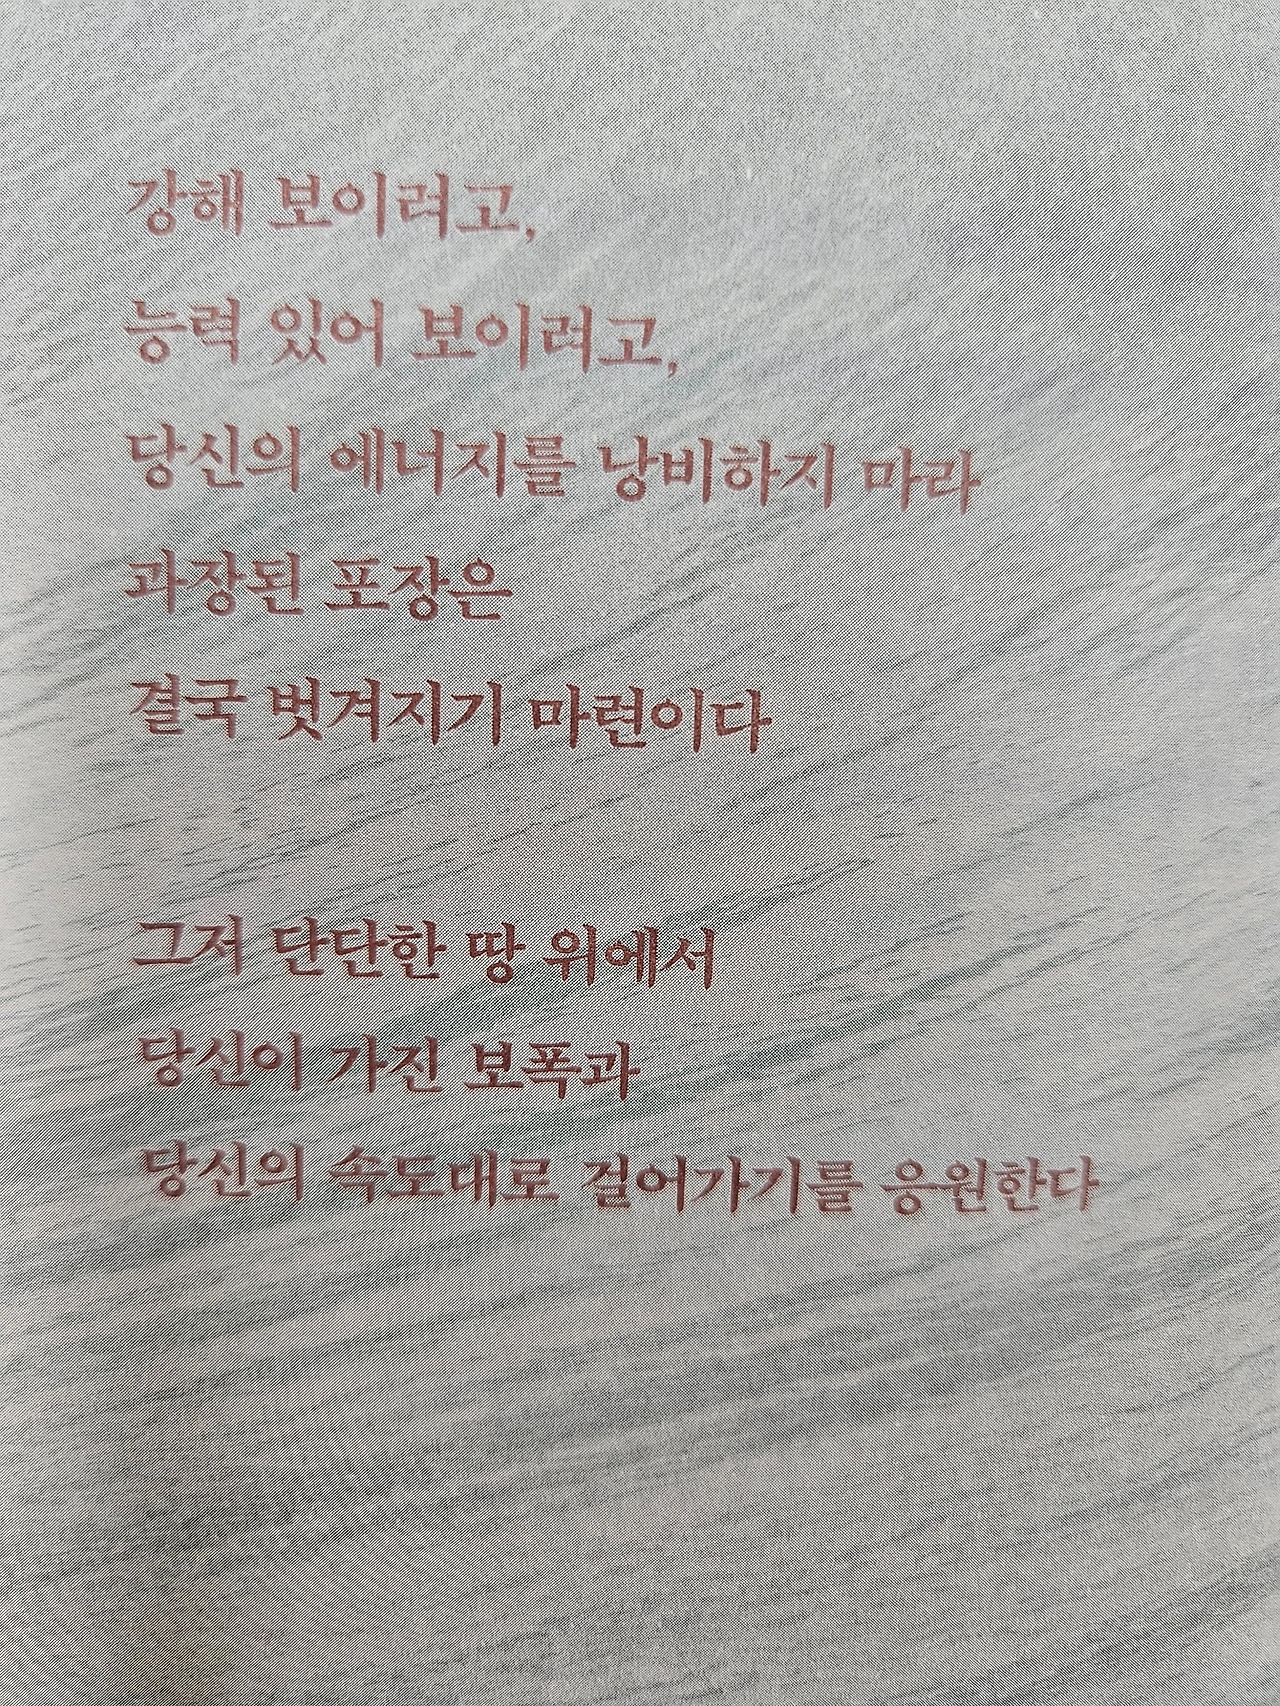 강해 보이려고,
능력 있어 보이려고,
당신의 에너지를 낭비하지 마라
과장된 포장은
결국 벗겨지기 마련이다
그저 단단한 땅 위에서
당신이 가진 보폭과
당신의 속도대로 걸어가기를 응원한다